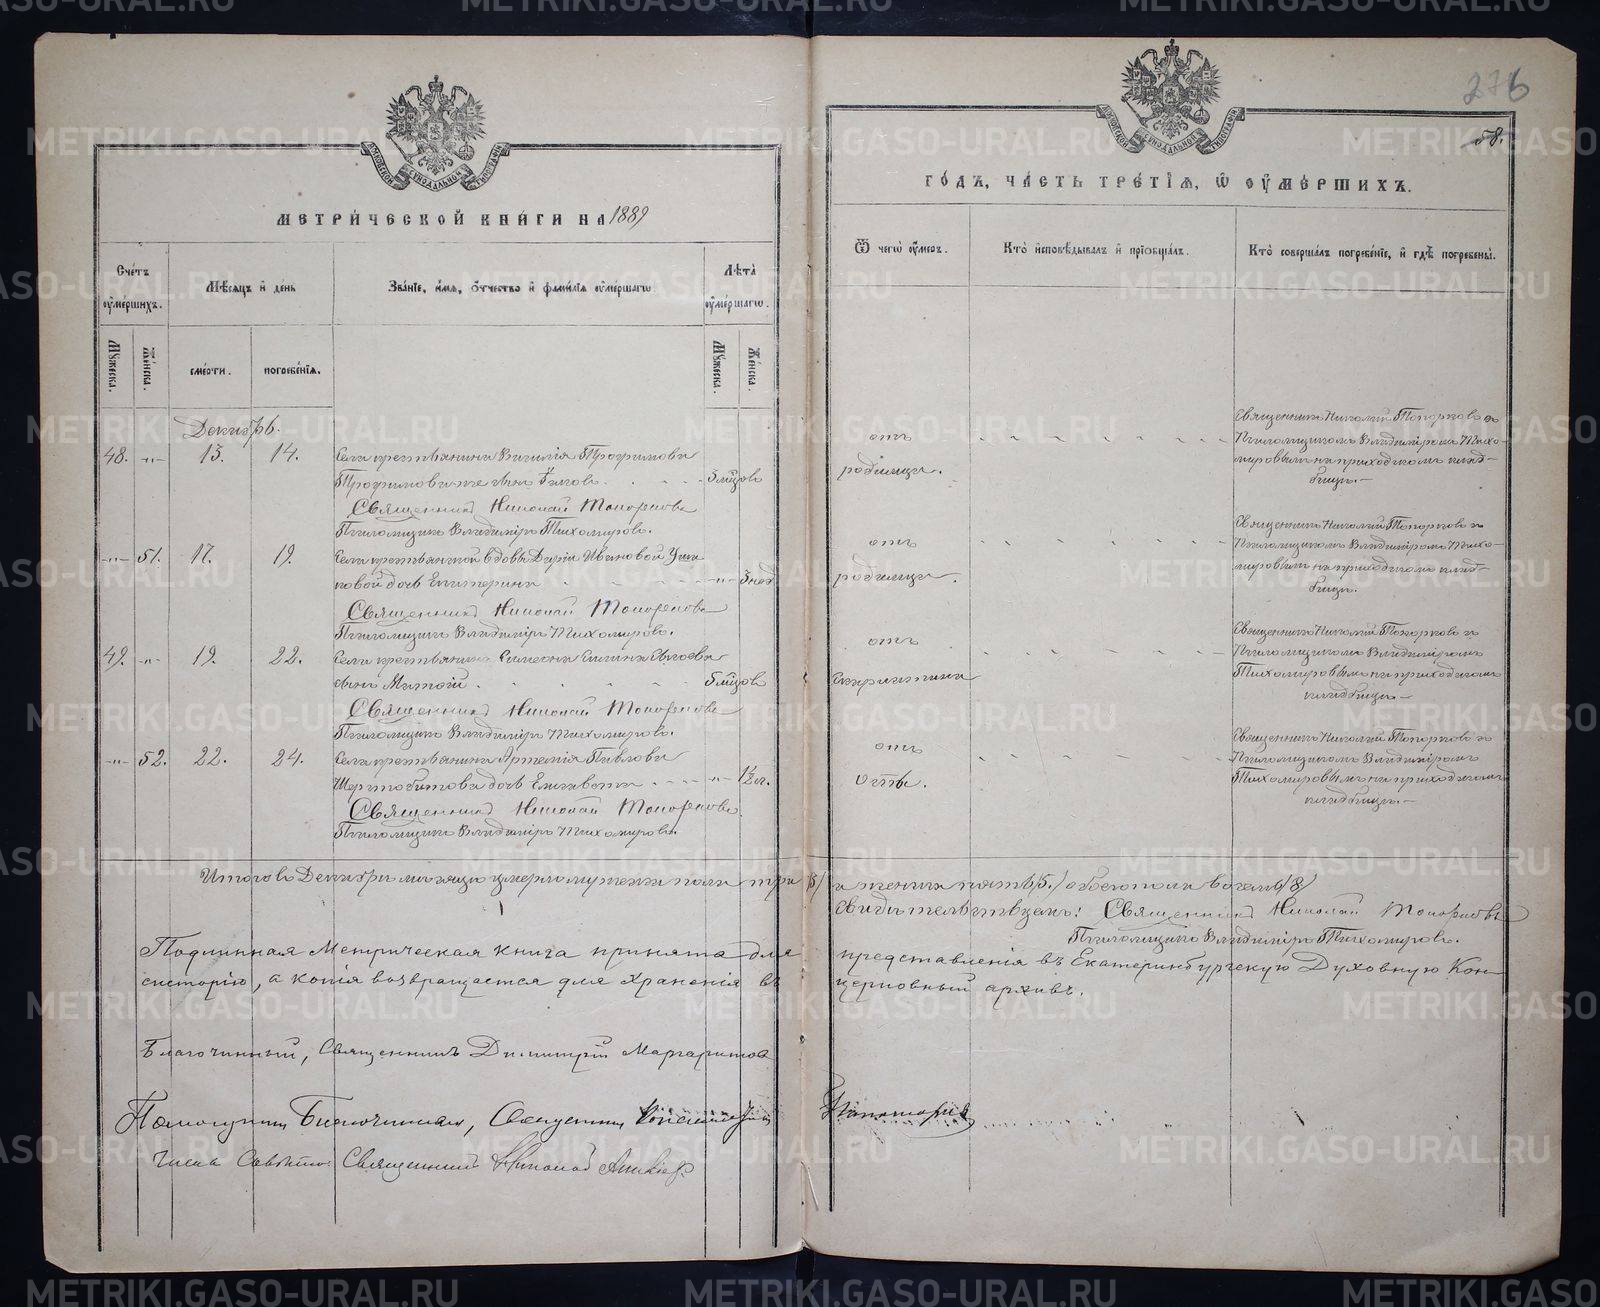 276
58.
МЕТРИ́ЧЕСКОЙ КНИ́ГИ НА 1889
ГО́ДЪ, ЧА́СТЬ ТРЕ́ТІѦ, Ѡ ОУ҆МЕ́РШИХЪ.
Сче́тъ оу҆ме́ршихъ.
Мѣ́сяцъ и҆ де́нь
Зва́нїе, и҆́мѧ, ѻ҆́тчество и҆ фами́лїѧ оу҆ме́ршагѡ.
Лѣ́та оу҆ме́ршагѡ.
Ѿ чегѡ̀ оу҆́меръ.
Кто̀ и҆сповѣ́дывалъ и҆ прїѡбща́лъ.
Кто̀ соверша́лъ погребе́нїе, и҆ гдѣ̀ погребены̀.
Мꙋ́жеска.
Же́нска.
сме́рти.
погребе́нїѧ.
Мꙋ́жеска.
Же́нска.
Декабрь.
48. -"- 13. 14. Села крестьянина Василія Трофимова
Трофимова же сынъ 5 мцовъ
Священникъ Николай Топорковъ
Псаломщикъ Владиміръ Тихомировъ.
отъ
родимца.
Священникъ Николай Топорковъ съ
Псаломщикомъ Владиміромъ Тихо-
мировымъ на приходскомъ клад-
бищѣ.
-"- 51. 17. 19. Села крестьянской вдовы Дарьи Ивановой
дочь Екатерина -"- 3 нед.
Священникъ Николай Топорковъ
Псаломщикъ Владиміръ Тихомировъ.
отъ
родимца.
Священникъ Николай Топорковъ съ
Псаломщикомъ Владиміромъ Тихо-
мировымъ на приходскомъ клад-
бищѣ.
49. -"- 19. 22. Села крестьянина Симеона
сынъ 5 мцовъ
Священникъ Николай Топорковъ
Псаломщикъ Владиміръ Тихомировъ.
отъ
скарлатины
Священникъ Николай Топорковъ съ
Псаломщикомъ Владиміромъ
Тихомировымъ на приходскомъ
кладбищѣ.
-"- 52. 22. 24. Села крестьянина Артемія Павлова
дочь Елизавета -"-
Священникъ Николай Топорковъ.
Псаломщикъ Владиміръ Тихомировъ.
отъ
оспы.
Священникъ Николай Топорковъ съ
Псаломщикомъ Владиміромъ
Тихомировымъ на приходскомъ
кладбищѣ.
Итого въ Декабрѣ мѣсяцѣ умерло мужеска пола три /3/ и женска пять /5./ обоего пола восемь /8/
Свидѣтельствуемъ: Священникъ Николай Топорковъ
Псаломщикъ Владиміръ Тихомировъ.
Подлинная Метрическая книга принята для представленія въ Екатеринбургскую Духовную Кон-
систорію, а копія возвращается для храненія въ церковный архивъ.
Благочинный, Священникъ Димитрій Маргаритовъ
Помощникъ Благочиннаго, Священникъ
Членъ Совѣта: Священникъ Николай
METRIKI.GASO-URAL.RU